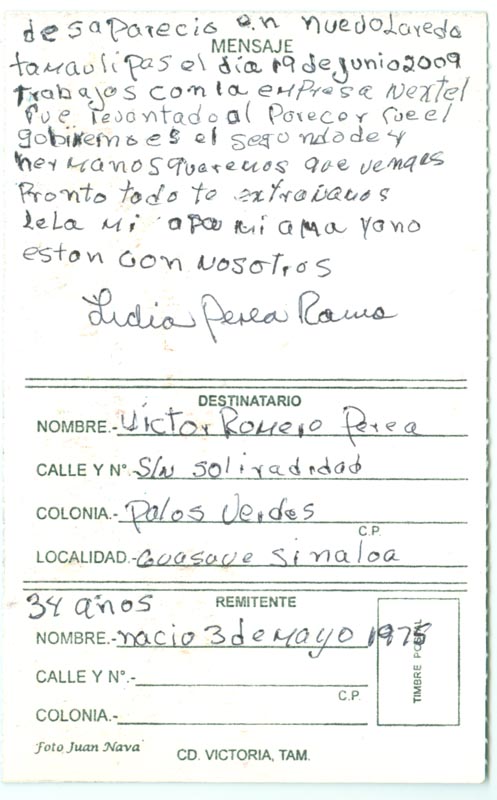 desaparecio en nuevo Laredo
MENSAJE
tamaulipas el día 19 de junio 2009
trabajos con la empresa Nextel
fue levantado al Parecer fue el
gobierno es el segundo de 4
hermanos queremos que vengas
Pronto todo te extrañamos
lela mi apa mi ama ya no
estan con nosotros
Lidia Perea Rama
DESTINATARIO
NOMBRE.- Victor Romero Perea
CALLE Y N°. S/N Soliradidad
COLONIA.- Palos Verdes
C.P.
LOCALIDAD.- Guasave Sinaloa
34 años REMITENTE
NOMBRE.- nacio 3 de mayo 1975
CALLE Y N°.-
C.P.
COLONIA.-
TIMBRE POSTAL
Foto Juan Nava
CD. VICTORIA, TAM.